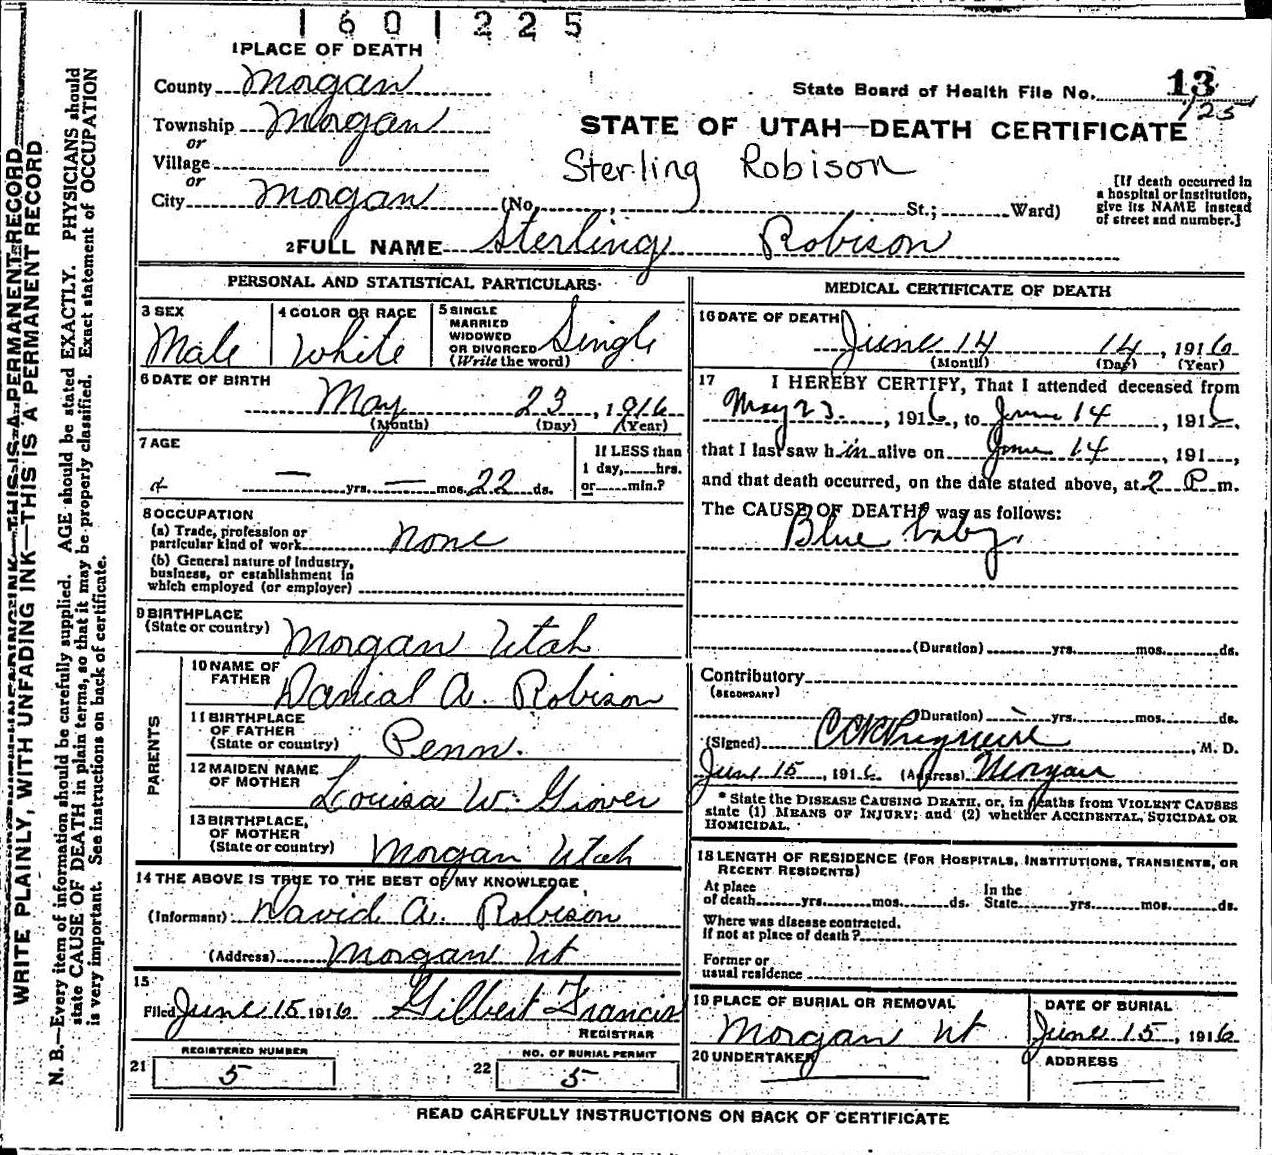 1601225
1 PLACE OF DEATH
County Morgan
State Board of Health File No. 13
125
Township Morgan
or
STATE OF UTAH—DEATH CERTIFICATE
Village
Sterling Robison
or
City Morgan (No. ; St.; Ward)
[If death occurred in
a hospital or institution,
give its NAME instead
of street and number.]
2 FULL NAME Sterling Robison
PERSONAL AND STATISTICAL PARTICULARS
3 SEX
Male
4 COLOR OR RACE
White
5 SINGLE
MARRIED
WIDOWED
OR DIVORCED
(Write the word)
Single
6 DATE OF BIRTH
May 23, 1916
(Month) (Day) (Year)
7 AGE
— yrs. — mos. 22 ds.
If LESS than
1 day, hrs.
or min.?
8 OCCUPATION
(a) Trade, profession or
particular kind of work None
(b) General nature of industry,
business, or establishment in
which employed (or employer)
9 BIRTHPLACE
(State or country) Morgan Utah
PARENTS
10 NAME OF
FATHER Danial A. Robison
11 BIRTHPLACE
OF FATHER
(State or country) Penn.
12 MAIDEN NAME
OF MOTHER Louisa W. Grover
13 BIRTHPLACE,
OF MOTHER
(State or country) Morgan Utah
14 THE ABOVE IS TRUE TO THE BEST OF MY KNOWLEDGE
(Informant) David A. Robison
(Address) Morgan Ut
15
Filed June 15 1916 Gilbert Francis
REGISTRAR
21 REGISTERED NUMBER
5
22 NO. OF BURIAL PERMIT
5
MEDICAL CERTIFICATE OF DEATH
16 DATE OF DEATH
June 14 14, 1916
(Month) (Day) (Year)
17 I HEREBY CERTIFY, That I attended deceased from
May 23, 1916, to June 14, 1916,
that I last saw him alive on June 14, 191 ,
and that death occurred, on the date stated above, at 2 P m.
The CAUSE OF DEATH* was as follows:
Blue baby.
(Duration) yrs. mos. ds.
Contributory
(SECONDARY)
(Duration) yrs. mos. ds.
(Signed) M. D.
June 15, 1916 (Address) Morgan
* State the DISEASE CAUSING DEATH, or, in deaths from VIOLENT CAUSES
state (1) MEANS OF INJURY; and (2) whether ACCIDENTAL, SUICIDAL OR
HOMICIDAL.
18 LENGTH OF RESIDENCE (FOR HOSPITALS, INSTITUTIONS, TRANSIENTS, OR
RECENT RESIDENTS)
At place
of death yrs. mos. ds.
In the
State yrs. mos. ds.
Where was disease contracted,
If not at place of death?
Former or
usual residence
19 PLACE OF BURIAL OR REMOVAL
Morgan Ut
DATE OF BURIAL
June 15, 1916
20 UNDERTAKER
ADDRESS
READ CAREFULLY INSTRUCTIONS ON BACK OF CERTIFICATE
WRITE PLAINLY, WITH UNFADING INK—THIS IS A PERMANENT RECORD
N. B.—Every item of information should be carefully supplied. AGE should be stated EXACTLY. PHYSICIANS should
state CAUSE OF DEATH in plain terms, so that it may be properly classified. Exact statement of OCCUPATION
is very important. See instructions on back of certificate.